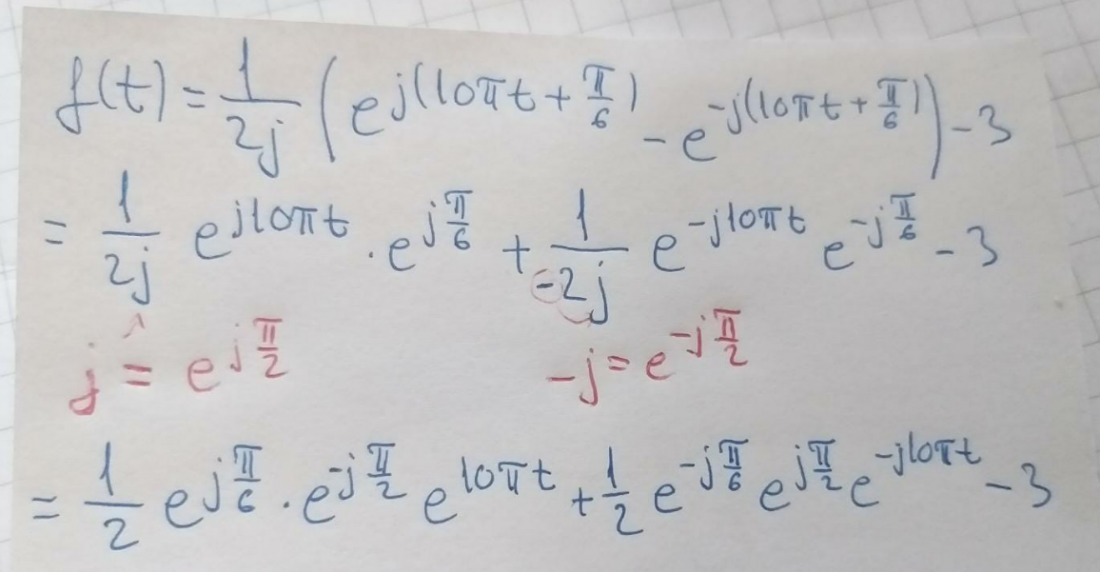 f(t) = \frac{1}{2j} \left( e^{j(10πt + \frac{π}{6})} - e^{-j(10πt + \frac{π}{6})} \right) - 3
= \frac{1}{2j} e^{j10πt} \cdot e^{j\frac{π}{6}} + \frac{1}{-2j} e^{-j10πt} e^{-j\frac{π}{6}} - 3
j = e^{j\frac{π}{2}} -j = e^{-j\frac{π}{2}}
= \frac{1}{2} e^{j\frac{π}{6}} \cdot e^{-j\frac{π}{2}} e^{10πt} + \frac{1}{2} e^{-j\frac{π}{6}} e^{j\frac{π}{2}} e^{-j10πt} - 3